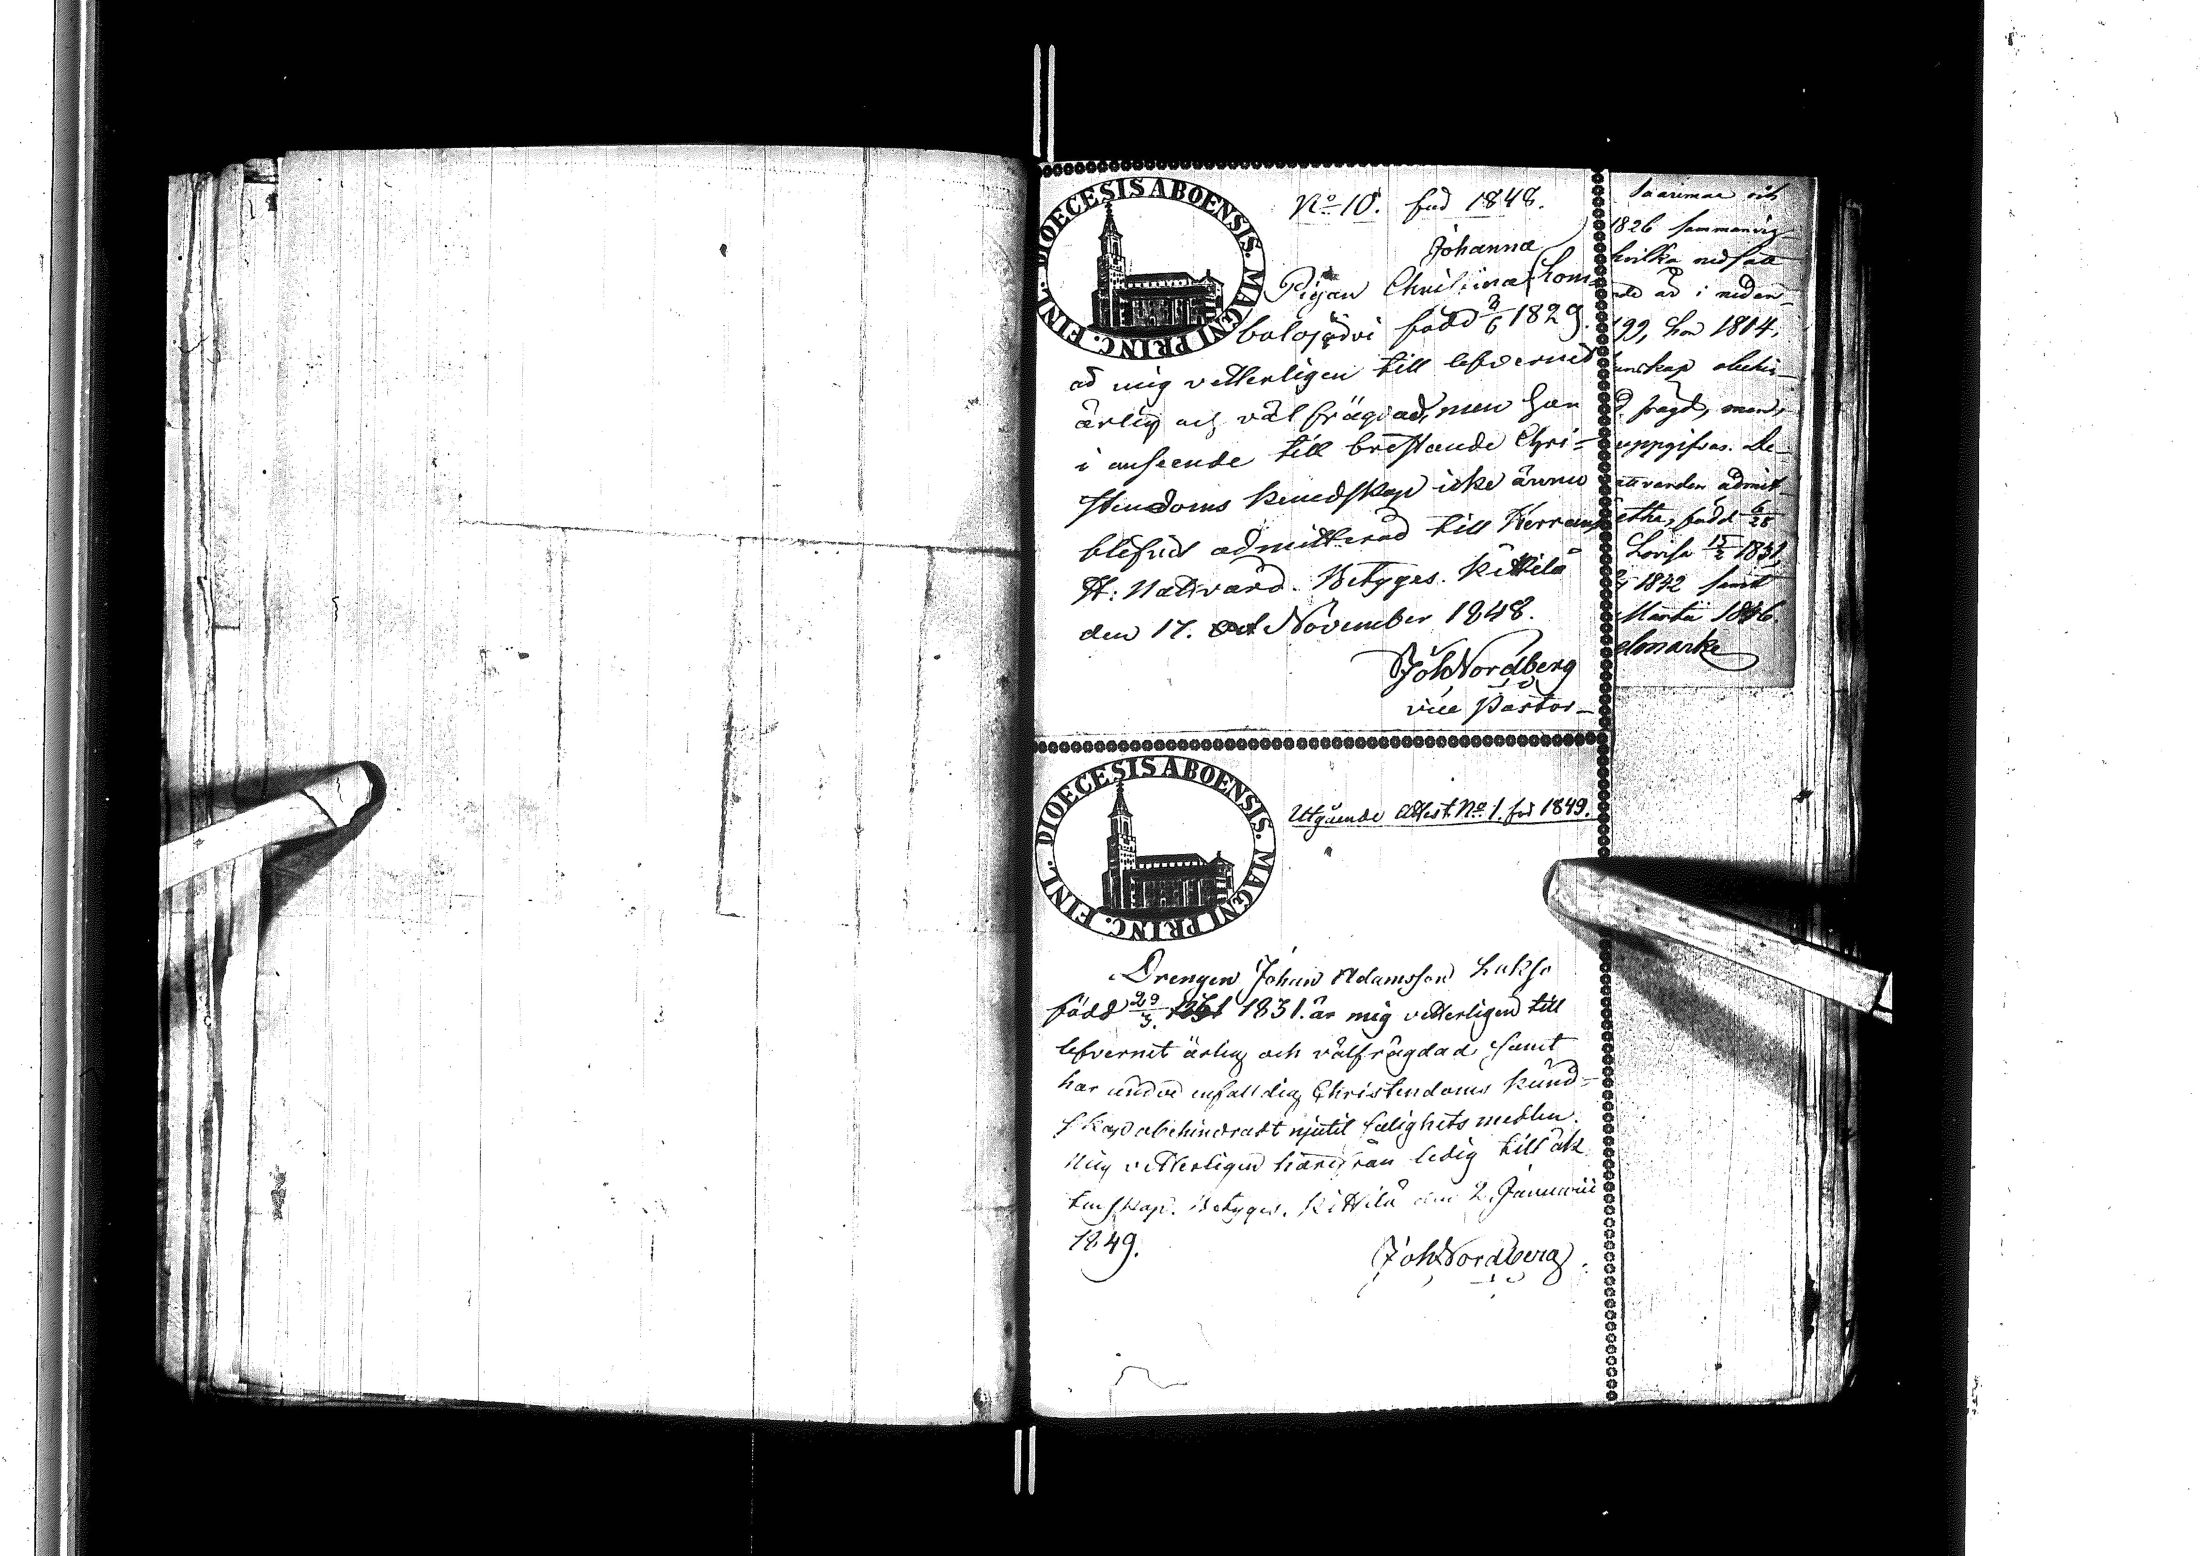 DIOECESIS ABOENSIS. MAGNI PRINC. FINL.
No 10. för 1848.
Johanna
Pigan Christina Lom-
bolojärvi född 3/6 1829.
är mig vetterligen till lefvernet
ärlig och välfrägdad, men har
i anseende till bristande Chri-
stendoms kundskap icke ännu
blifvit admitterad till Herrans
H: Nattvard. Betygas. Kittilä
den 17. November 1848.
Joh Nordberg
vice Pastor
Saarimaa och
1826 sammanvig-
hvilka nedsatt
är i neden-
99, hon 1804.
unskap obehin-
d. frägd, men,
uppgifvas. De-
attvarden admit-
etha, född 6/28
Lovisa 15/2 1831
1842 samt
Martii 1846.
elonarke
DIOECESIS ABOENSIS. MAGNI PRINC. FINL.
Utgående Attest No 1. för 1849.
Drengen Johan Adamsson Lukso
född 29/3. 1831. är mig vetterligen till
lefvernet ärlig och välfrägdad, samt
har under enfalldig Christendoms kund-
skap obehindradt njutit salighets medlen.
Mig vetterligen härifrån ledig till äk-
tenskap. Betygas. Kittilä den 2. Januarii
1849.
Joh Nordberg.